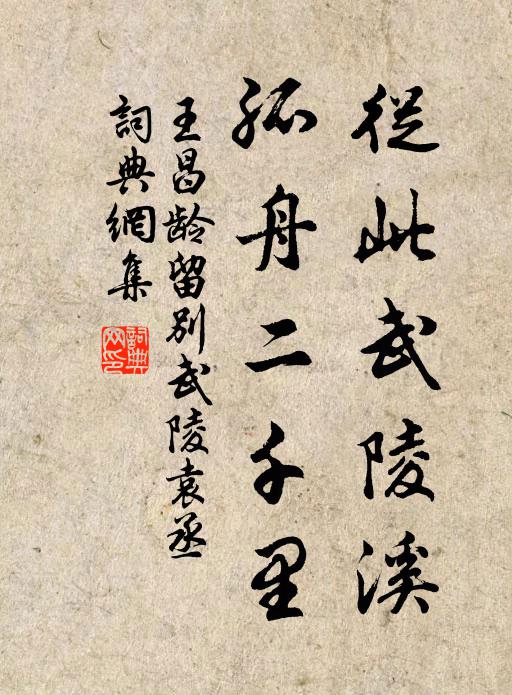 從此武陵溪
孤舟二千里
王昌龄留别武陵袁丞
詞典網集
詞典网印